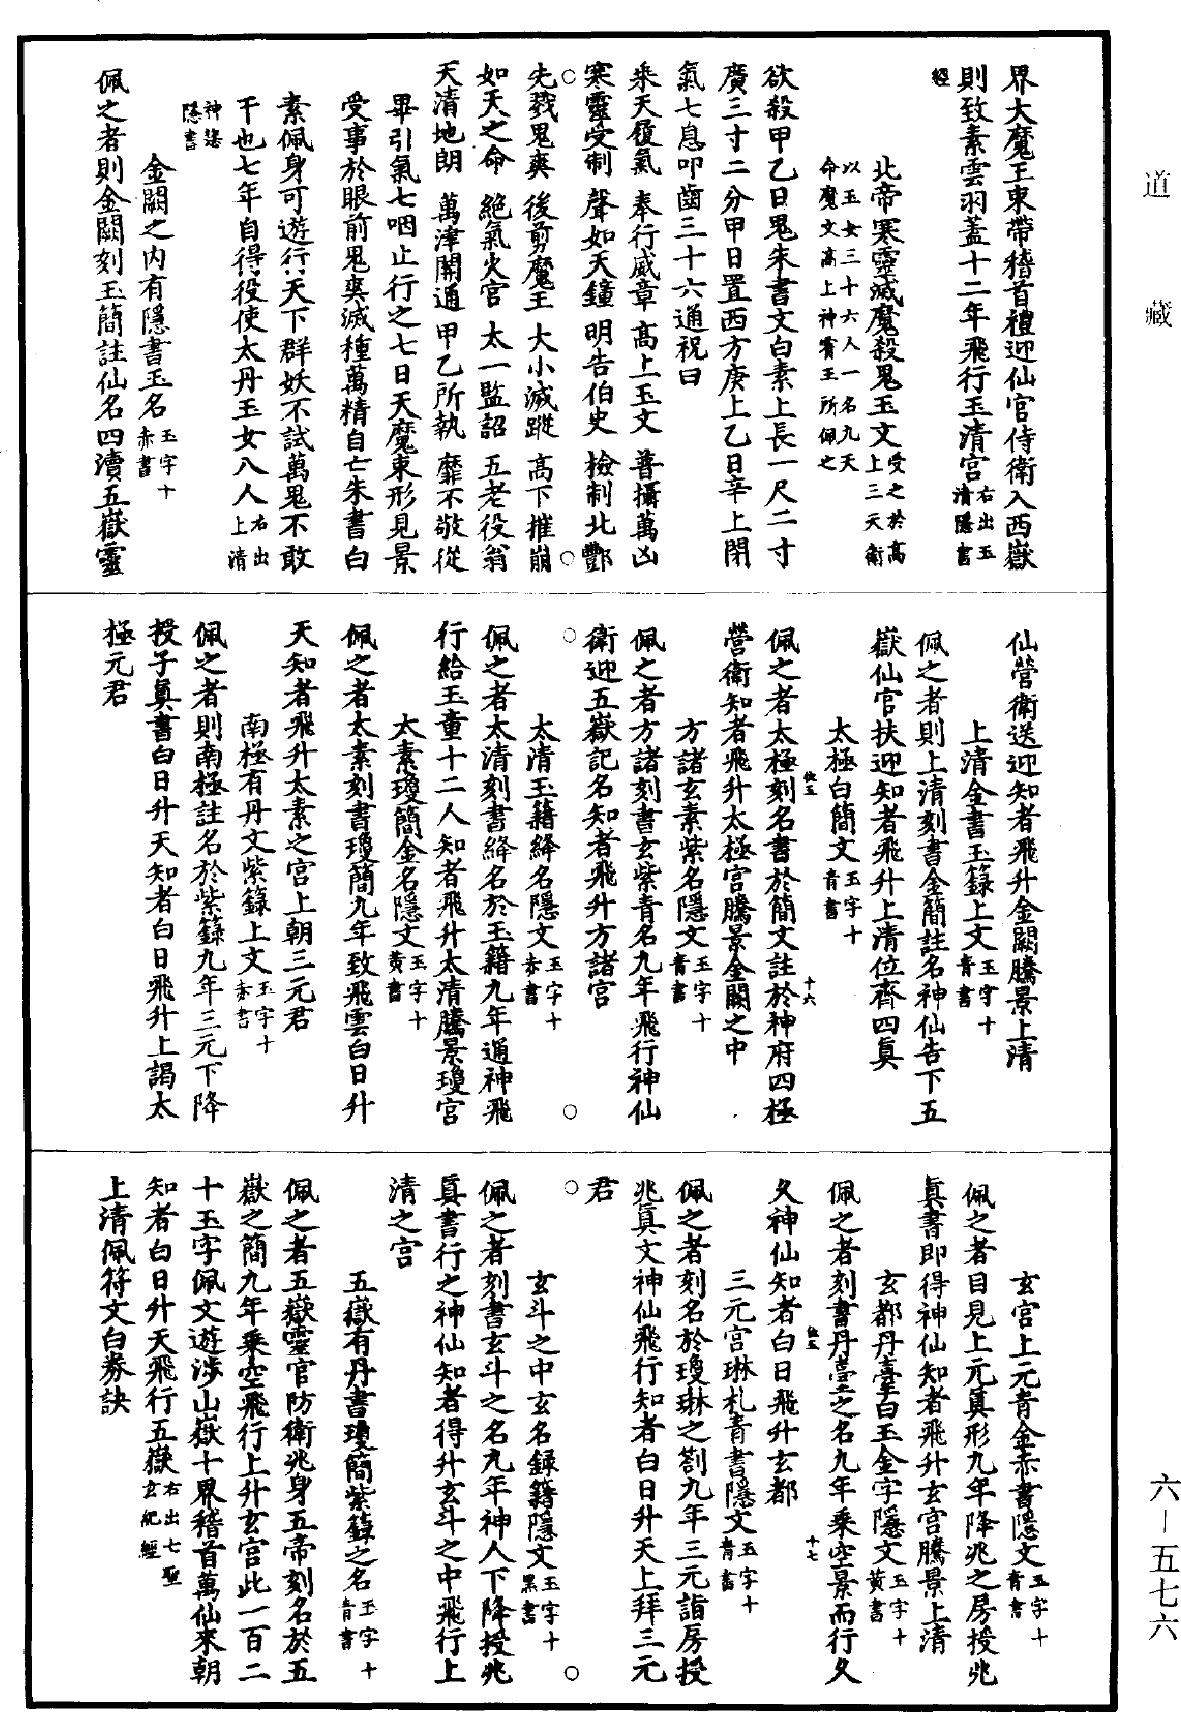 道藏
界大魔王束帶稽首禮迎仙官侍衛入西嶽
則致素雲羽蓋十二年飛行玉清宮右出玉清隱書
經
北帝寒靈滅魔殺鬼玉文受之於高上三天衛
以玉女三十六人一名九天命魔文高上神霄王所佩之
欲殺甲乙日鬼朱書文白素上長一尺二寸
廣三寸二分甲日置西方庚上乙日辛上閉
氣七息叩齒三十六通祝曰
乘天履氣 奉行威章 高上玉文 普攝萬凶
寒靈受制 聲如天鐘 明告伯史 檢制北酆
先戮鬼爽 後剪魔王 大小滅蹤 高下摧崩
如天之命 絕氣火宮 太一監詔 五老役翁
天清地朗 萬津開通 甲乙所執 靡不敬從
畢引氣七咽止行之七日天魔束形見景
受事於眼前鬼爽滅種萬精自亡朱書白
素佩身可遊行天下群妖不試萬鬼不敢
干也七年自得役使太丹玉女八人右出上清
神𢈔隱書
金闕之內有隱書玉名玉字十赤書
佩之者則金闕刻玉簡註仙名四瀆五嶽靈
仙營衛送迎知者飛升金闕騰景上清
上清金書玉籙上文玉字十青書
佩之者則上清刻書金簡註名神仙告下五
嶽仙官扶迎知者飛升上清位齊四真
太極白簡文玉字十青書
佩之者太極刻名書於簡文註於神府四極
營衛知者飛升太極宮騰景金闕之中
方諸玄素紫名隱文玉字十青書
佩之者方諸刻書玄紫青名九年飛行神仙
衛迎五嶽記名知者飛升方諸宮
太清玉籍絳名隱文玉字十赤書
佩之者太清刻書絳名於玉籍九年通神飛
行給玉童十二人知者飛升太清騰景瓊宮
太素瓊簡金名隱文玉字十黃書
佩之者太素刻書瓊簡九年致飛雲白日升
天知者飛升太素之宮上朝三元君
南極有丹文紫籙上文玉字十赤書
佩之者則南極註名於紫籙九年三元下降
授子真書白日升天知者白日飛升上謁太
極元君
玄宮上元青金赤書隱文玉字十青書
佩之者目見上元真形九年降兆之房授兆
真書即得神仙知者飛升玄宮騰景上清
玄都丹臺白玉金字隱文玉字十黃書
佩之者刻書丹臺之名九年乘空景而行久
久神仙知者白日飛升玄都
三元宮琳札青書隱文玉字十青書
佩之者刻名於瓊琳之劄九年三元詣房授
兆真文神仙飛行知者白日升天上拜三元
君
玄斗之中玄名錄籍隱文玉字十黑書
佩之者刻書玄斗之名九年神人下降授兆
真書行之神仙知者得升玄斗之中飛行上
清之宮
五嶽有丹書瓊簡紫籙之名玉字十青書
佩之者五嶽靈官防衛兆身五帝刻名於五
嶽之簡九年乘空飛行上升玄宮此一百二
十玉字佩文遊涉山嶽十界稽首萬仙來朝
知者白日升天飛行五嶽右出七聖玄紀經
上清佩符文白券訣
六—五七六